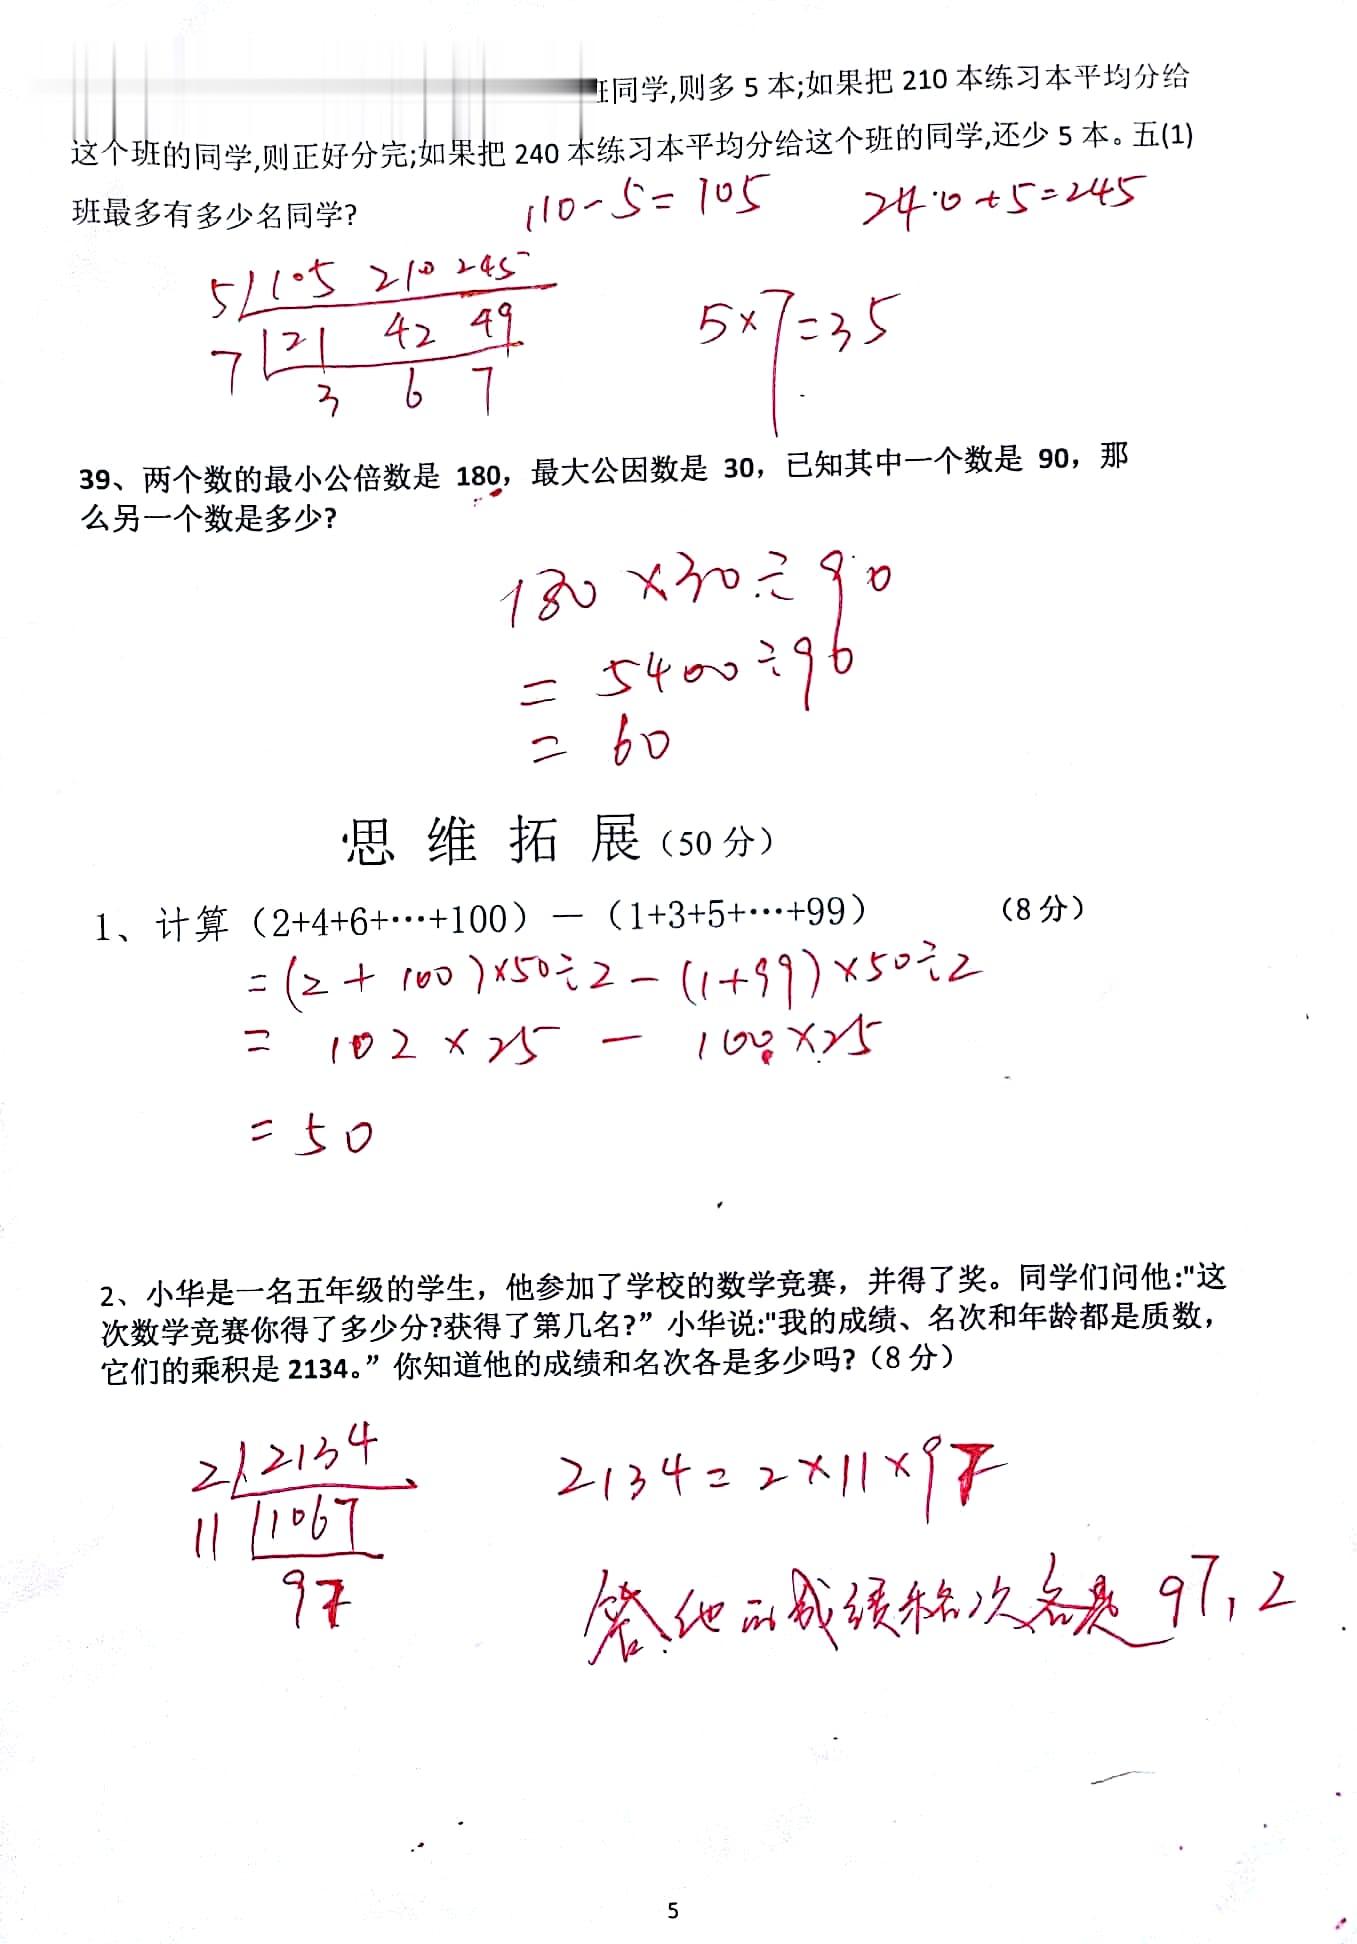 班同学,则多 5 本;如果把 210 本练习本平均分给
这个班的同学,则正好分完;如果把 240 本练习本平均分给这个班的同学,还少 5 本。五(1)
班最多有多少名同学?
110-5=105 240+5=245
5 105 210 245
7 21 42 49
3 6 7
5×7=35
39、两个数的最小公倍数是 180，最大公因数是 30，已知其中一个数是 90，那
么另一个数是多少?
180×30÷90
=5400÷90
=60
思维拓展（50 分）
1、计算（2+4+6+…+100）－（1+3+5+…+99） （8 分）
=(2+100)×50÷2-(1+99)×50÷2
=102×25-100×25
=50
2、小华是一名五年级的学生，他参加了学校的数学竞赛，并得了奖。同学们问他:"这
次数学竞赛你得了多少分?获得了第几名?” 小华说:"我的成绩、名次和年龄都是质数，
它们的乘积是 2134。” 你知道他的成绩和名次各是多少吗?（8 分）
2 2134
11 1067
97
2134=2×11×97
答:他的成绩和名次各是97,2
5